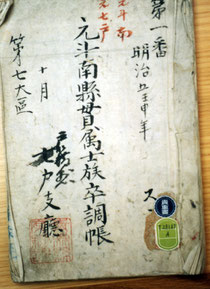 第一番
明治五壬申年
元斗南
元七戸
元斗南縣貫属士族卒調帳
十月
七戸支廳
第七大區